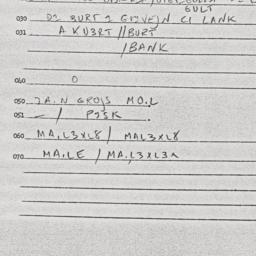 GULT
030 D2 BURT 2 GIJVEIN CI LANK
031 A KU3RT // BURT
/ BANK
040 O
050 2A.N GROJS MO.L
051 / P53K .
060 MA,L3XL8 / MAL3XL8
070 MA.LE / MA,L3XL3A